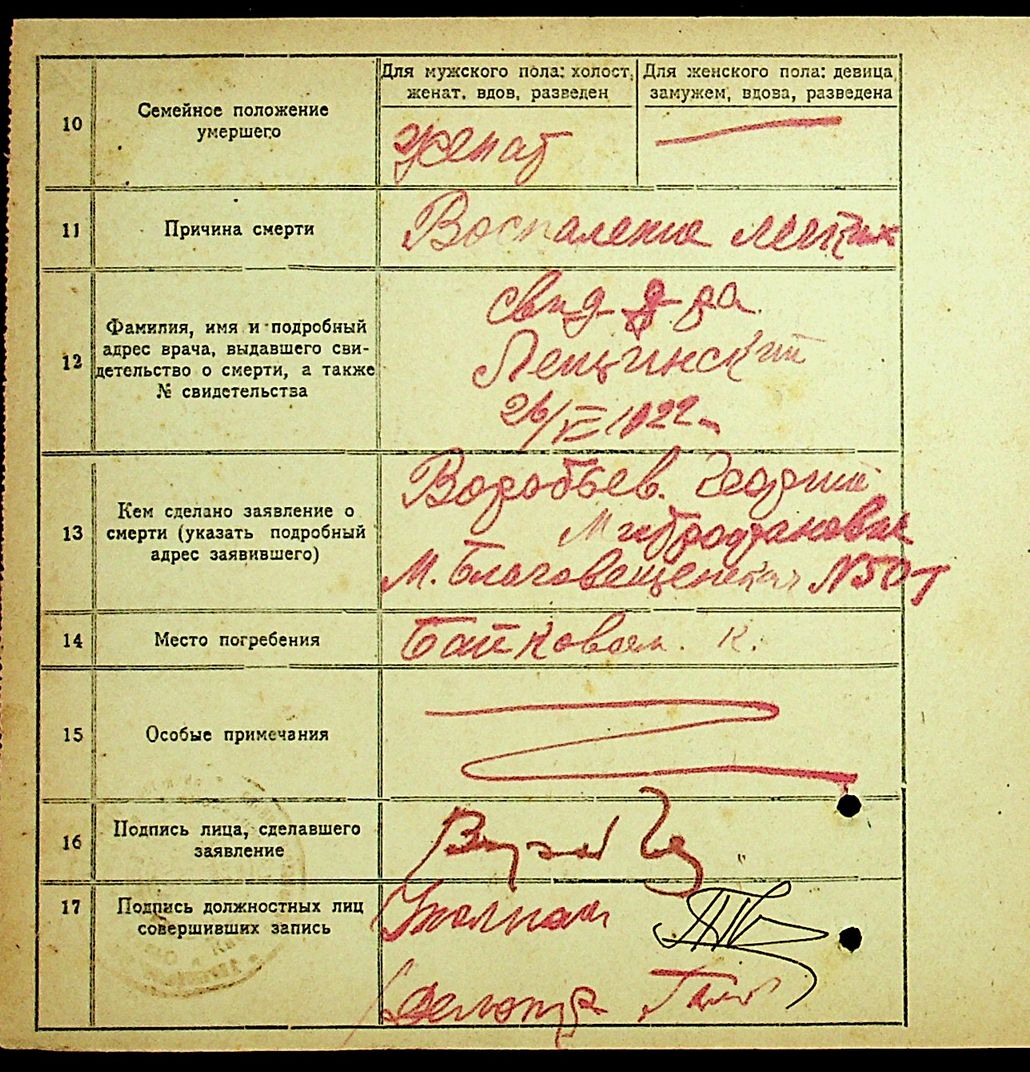 10
Семейное положение
умершего
Для мужского пола: холост,
женат, вдов, разведен
Для женского пола: девица,
замужем, вдова, разведена
женат
11
Причина смерти
Воспаление легких
12
Фамилия, имя и подробный
адрес врача, выдавшего сви-
детельство о смерти, а также
№ свидетельства
свид д-ра
Лещинский
13
Кем сделано заявление о
смерти (указать подробный
адрес заявившего)
Воробьев. Георгий
М. Благовещенская N50
14
Место погребения
Байковом. К.
15
Особые примечания
16
Подпись лица, сделавшего
заявление
17
Подпись должностных лиц
совершивших запись